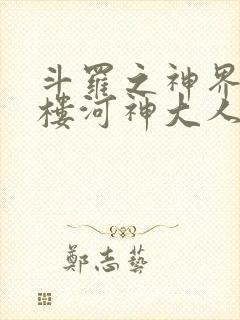 斗羅之神界
樓河神大人
鄭志藝